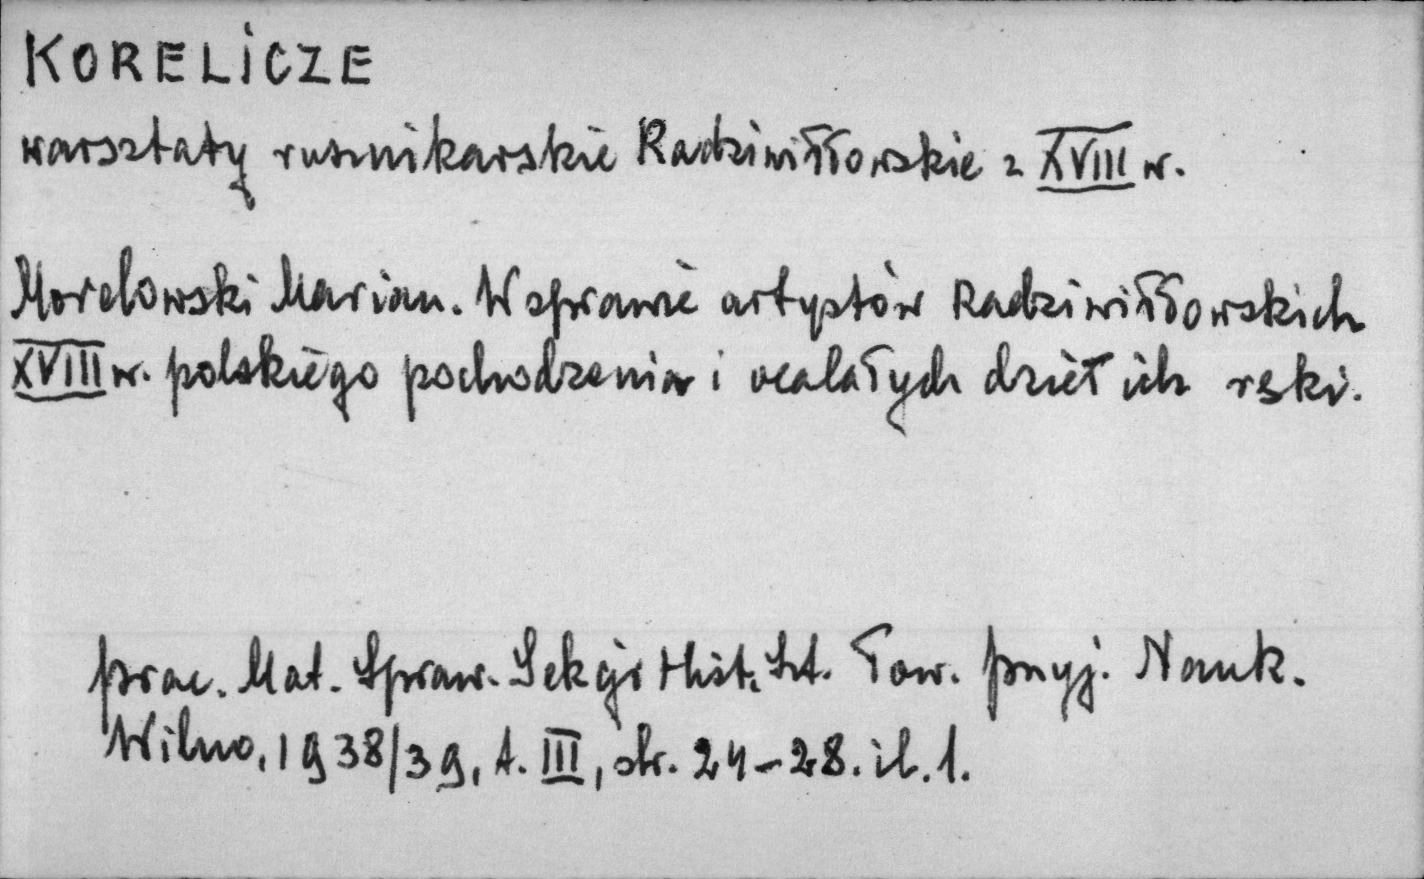 KORELICZE
warsztaty rusznikarskie Radziwiłłowskie z XVIII w.
Morelowski Marian. W sprawie artystów Radziwiłłowskich
XVIII w. polskiego pochodzenia i ocalałych dzieł ich ręki.
Prac. Mat. Spraw. Sekcji Hist. Szt. Tow. Przyj. Nauk.
Wilno, 1938/39, t. III, str. 24-28. il. 1.